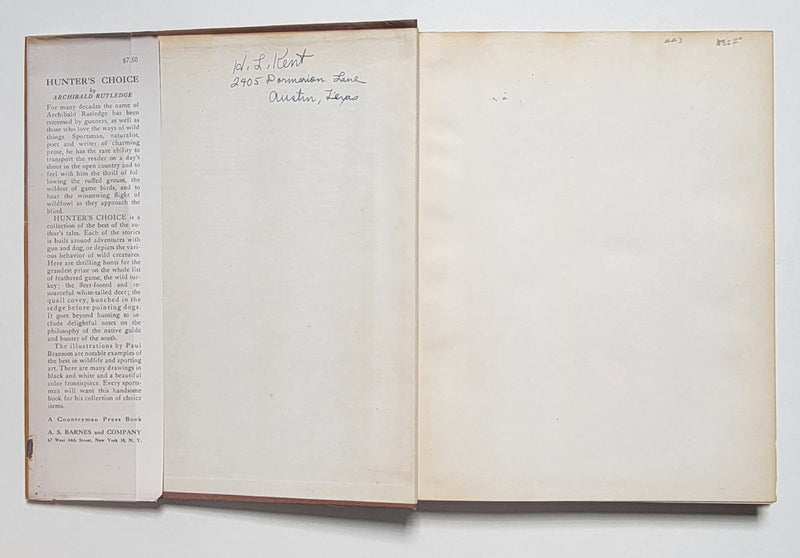 $7.50
HUNTER'S CHOICE
by
ARCHIBALD RUTLEDGE
For many decades the name of
Archibald Rutledge has been
esteemed by gunners, as well as
those who love the ways of wild
things. Sportsman, naturalist,
poet and writer of charming
prose, he has the rare ability to
transport the reader on a day's
shoot in the open country and to
feel with him the thrill of fol-
lowing the ruffed grouse, the
wildest of game birds, and to
hear the winnowing flight of
wildfowl as they approach the
blind.
HUNTER'S CHOICE is a
collection of the best of the au-
thor's tales. Each of the stories
is built around adventures with
gun and dog, or depicts the vari-
ous behavior of wild creatures.
Here are thrilling hunts for the
grandest prize on the whole list
of feathered game, the wild tur-
key; the fleet-footed and re-
sourceful white-tailed deer; the
quail covey, bunched in the
sedge before pointing dogs.
It goes beyond hunting to in-
clude delightful notes on the
philosophy of the native guide
and hunter of the south.
The illustrations by Paul
Bransom are notable examples of
the best in wildlife and sporting
art. There are many drawings in
black and white and a beautiful
color frontispiece. Every sports-
man will want this handsome
book for his collection of choice
items.
A Countryman Press Book
A. S. BARNES and COMPANY
67 West 44th Street, New York 18, N. Y.
W. L. Kent
2405 Dormarion Lane
Austin, Texas